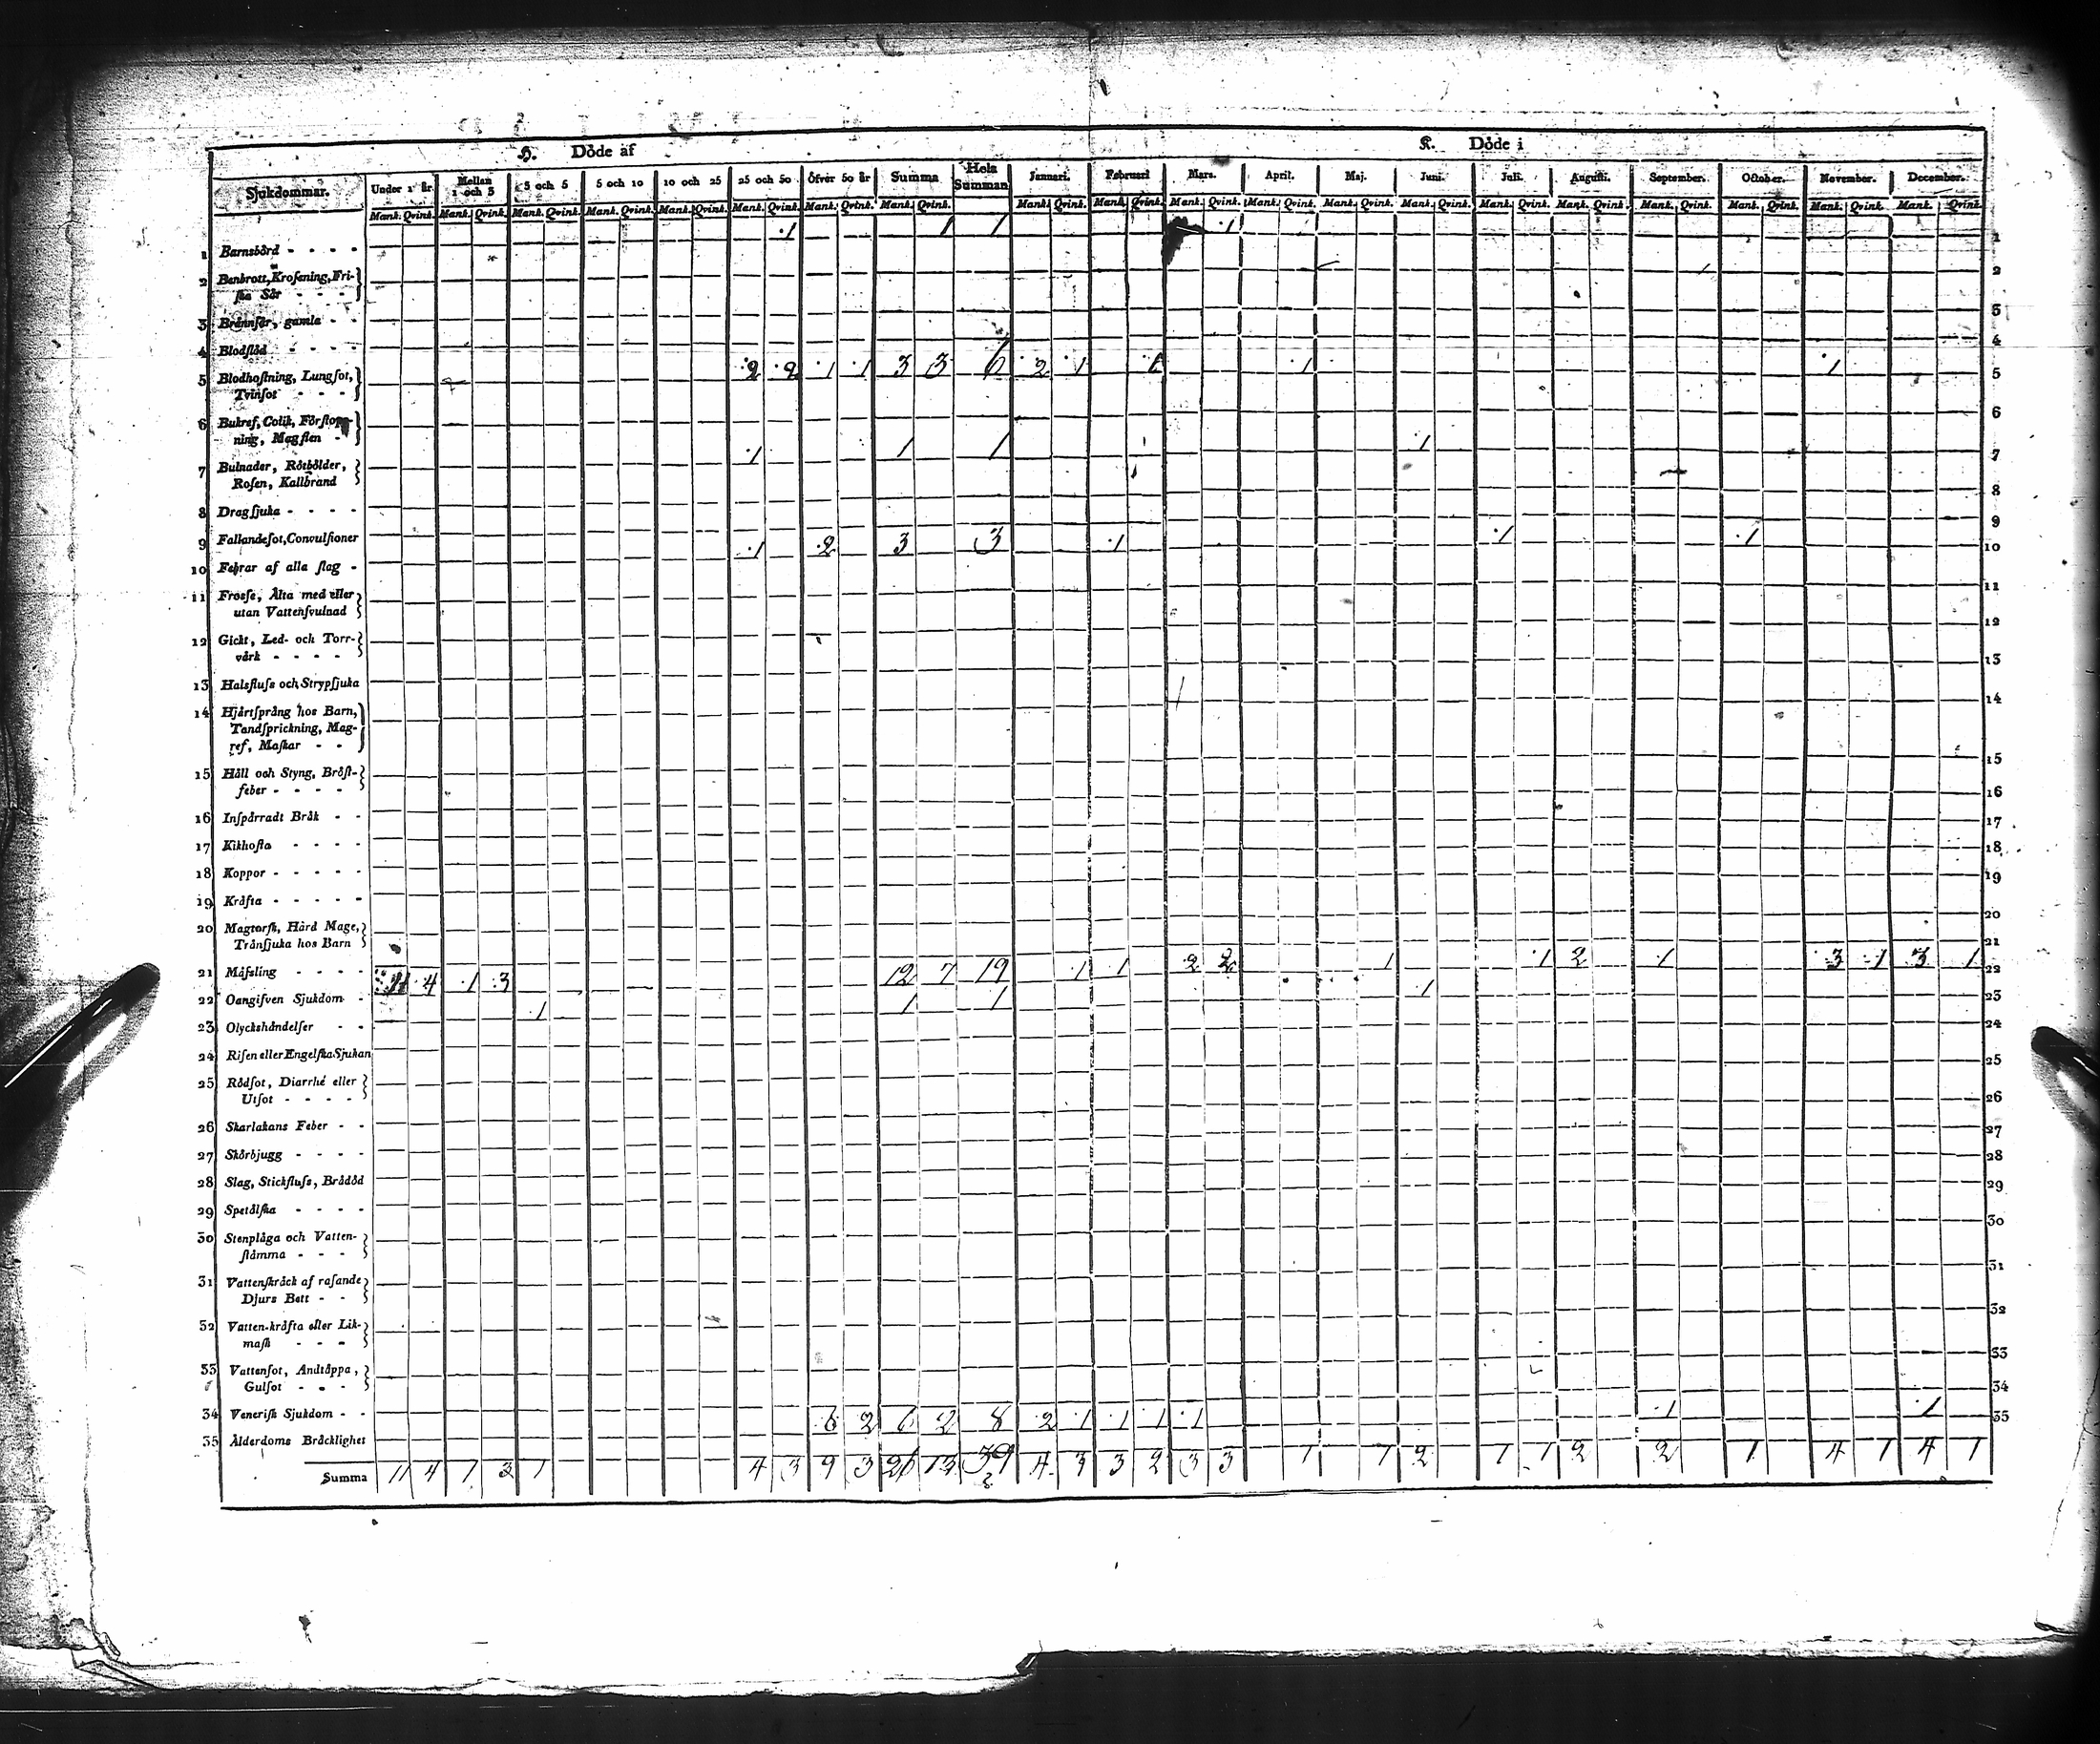 H. Döde af K. Döde i
Sjukdommar. Under 1 år. Mellan 1 och 3 3 och 5 5 och 10 10 och 25 25 och 50 Öfver 50 år Summa Hela Summan Januari. Februari Mars. April. Maj. Juni. Juli. Augusti. September. October. November. December.
Mank. Qvink. Mank. Qvink. Mank. Qvink. Mank. Qvink. Mank. Qvink. Mank. Qvink. Mank. Qvink. Mank. Qvink. Mank. Qvink. Mank. Qvink. Mank. Qvink. Mank. Qvink. Mank. Qvink. Mank. Qvink. Mank. Qvink. Mank. Qvink. Mank. Qvink. Mank. Qvink. Mank. Qvink. Mank. Qvink.
1 Barnsbörd - - - - 1 1 1 1 1
2 Benbrott, Krosſning, Fri-
ſka Sår - - - 2
3 Brännſår, gamla - - 3
4 Blodflöd - - - - 4
5 Blodhoſtning, Lungſot, 2 2 1 1 3 3 6 2 1 1 1 1 5
Tvinſot - - -
6 Bukref, Colik, Förſtopp-
ning, Magſten - 6
7 Bulnader, Rötbölder, 1 1 1 1 7
Roſen, Kallbrand
8 Dragſjuka - - - - 8
9 Fallandeſot, Convulſioner 9
10 Febrar af alla ſlag - 1 2 3 3 1 1 1 10
11 Frosſa, Älta med eller
utan Vattenſvulnad 11
12 Gickt, Led- och Torr-
värk - - - - 12
13 Halsfluſs och Strypſjuka 13
14 Hjärtſprång hos Barn,
Tandſprickning, Mag-
ref, Maſkar - - 14
15 Håll och Styng, Bröſt-
feber - - - - 15
16 Inſpärradt Bråk - - 16
17 Kikhoſta - - - - 17
18 Koppor - - - - - 18
19 Kräfta - - - - - 19
20 Magtorſk, Hård Mage,
Tränſjuka hos Barn 20
21 Mäſsling - - - - 21
22 Oangifven Sjukdom - 11 4 1 3 12 7 19 1 1 2 2 1 1 2 1 3 1 3 1 22
23 Olyckshändelſer - - 1 1 1 1 23
24 Riſen eller Engelſka Sjukan 24
25 Rödſot, Diarrhé eller
Utſot - - - - 25
26 Skarlakans Feber - - 26
27 Skörbjugg - - - - 27
28 Slag, Stickfluſs, Brådöd 28
29 Spetälſka - - - - 29
30 Stenplåga och Vatten-
ſtämma - - - 30
31 Vattenſkräck af raſande
Djurs Bett - - 31
32 Vatten-kräfta eller Lik-
maſk - - - 32
33 Vattenſot, Andtäppa,
Gulſot - - - 33
34 Veneriſk Sjukdom - - 34
35 Ålderdoms Bräcklighet 6 2 6 2 8 2 1 1 1 1 1 1 35
Summa 11 4 1 3 1 4 3 9 3 26 13 39 4 3 3 2 3 3 1 1 2 1 1 2 2 1 4 1 4 1